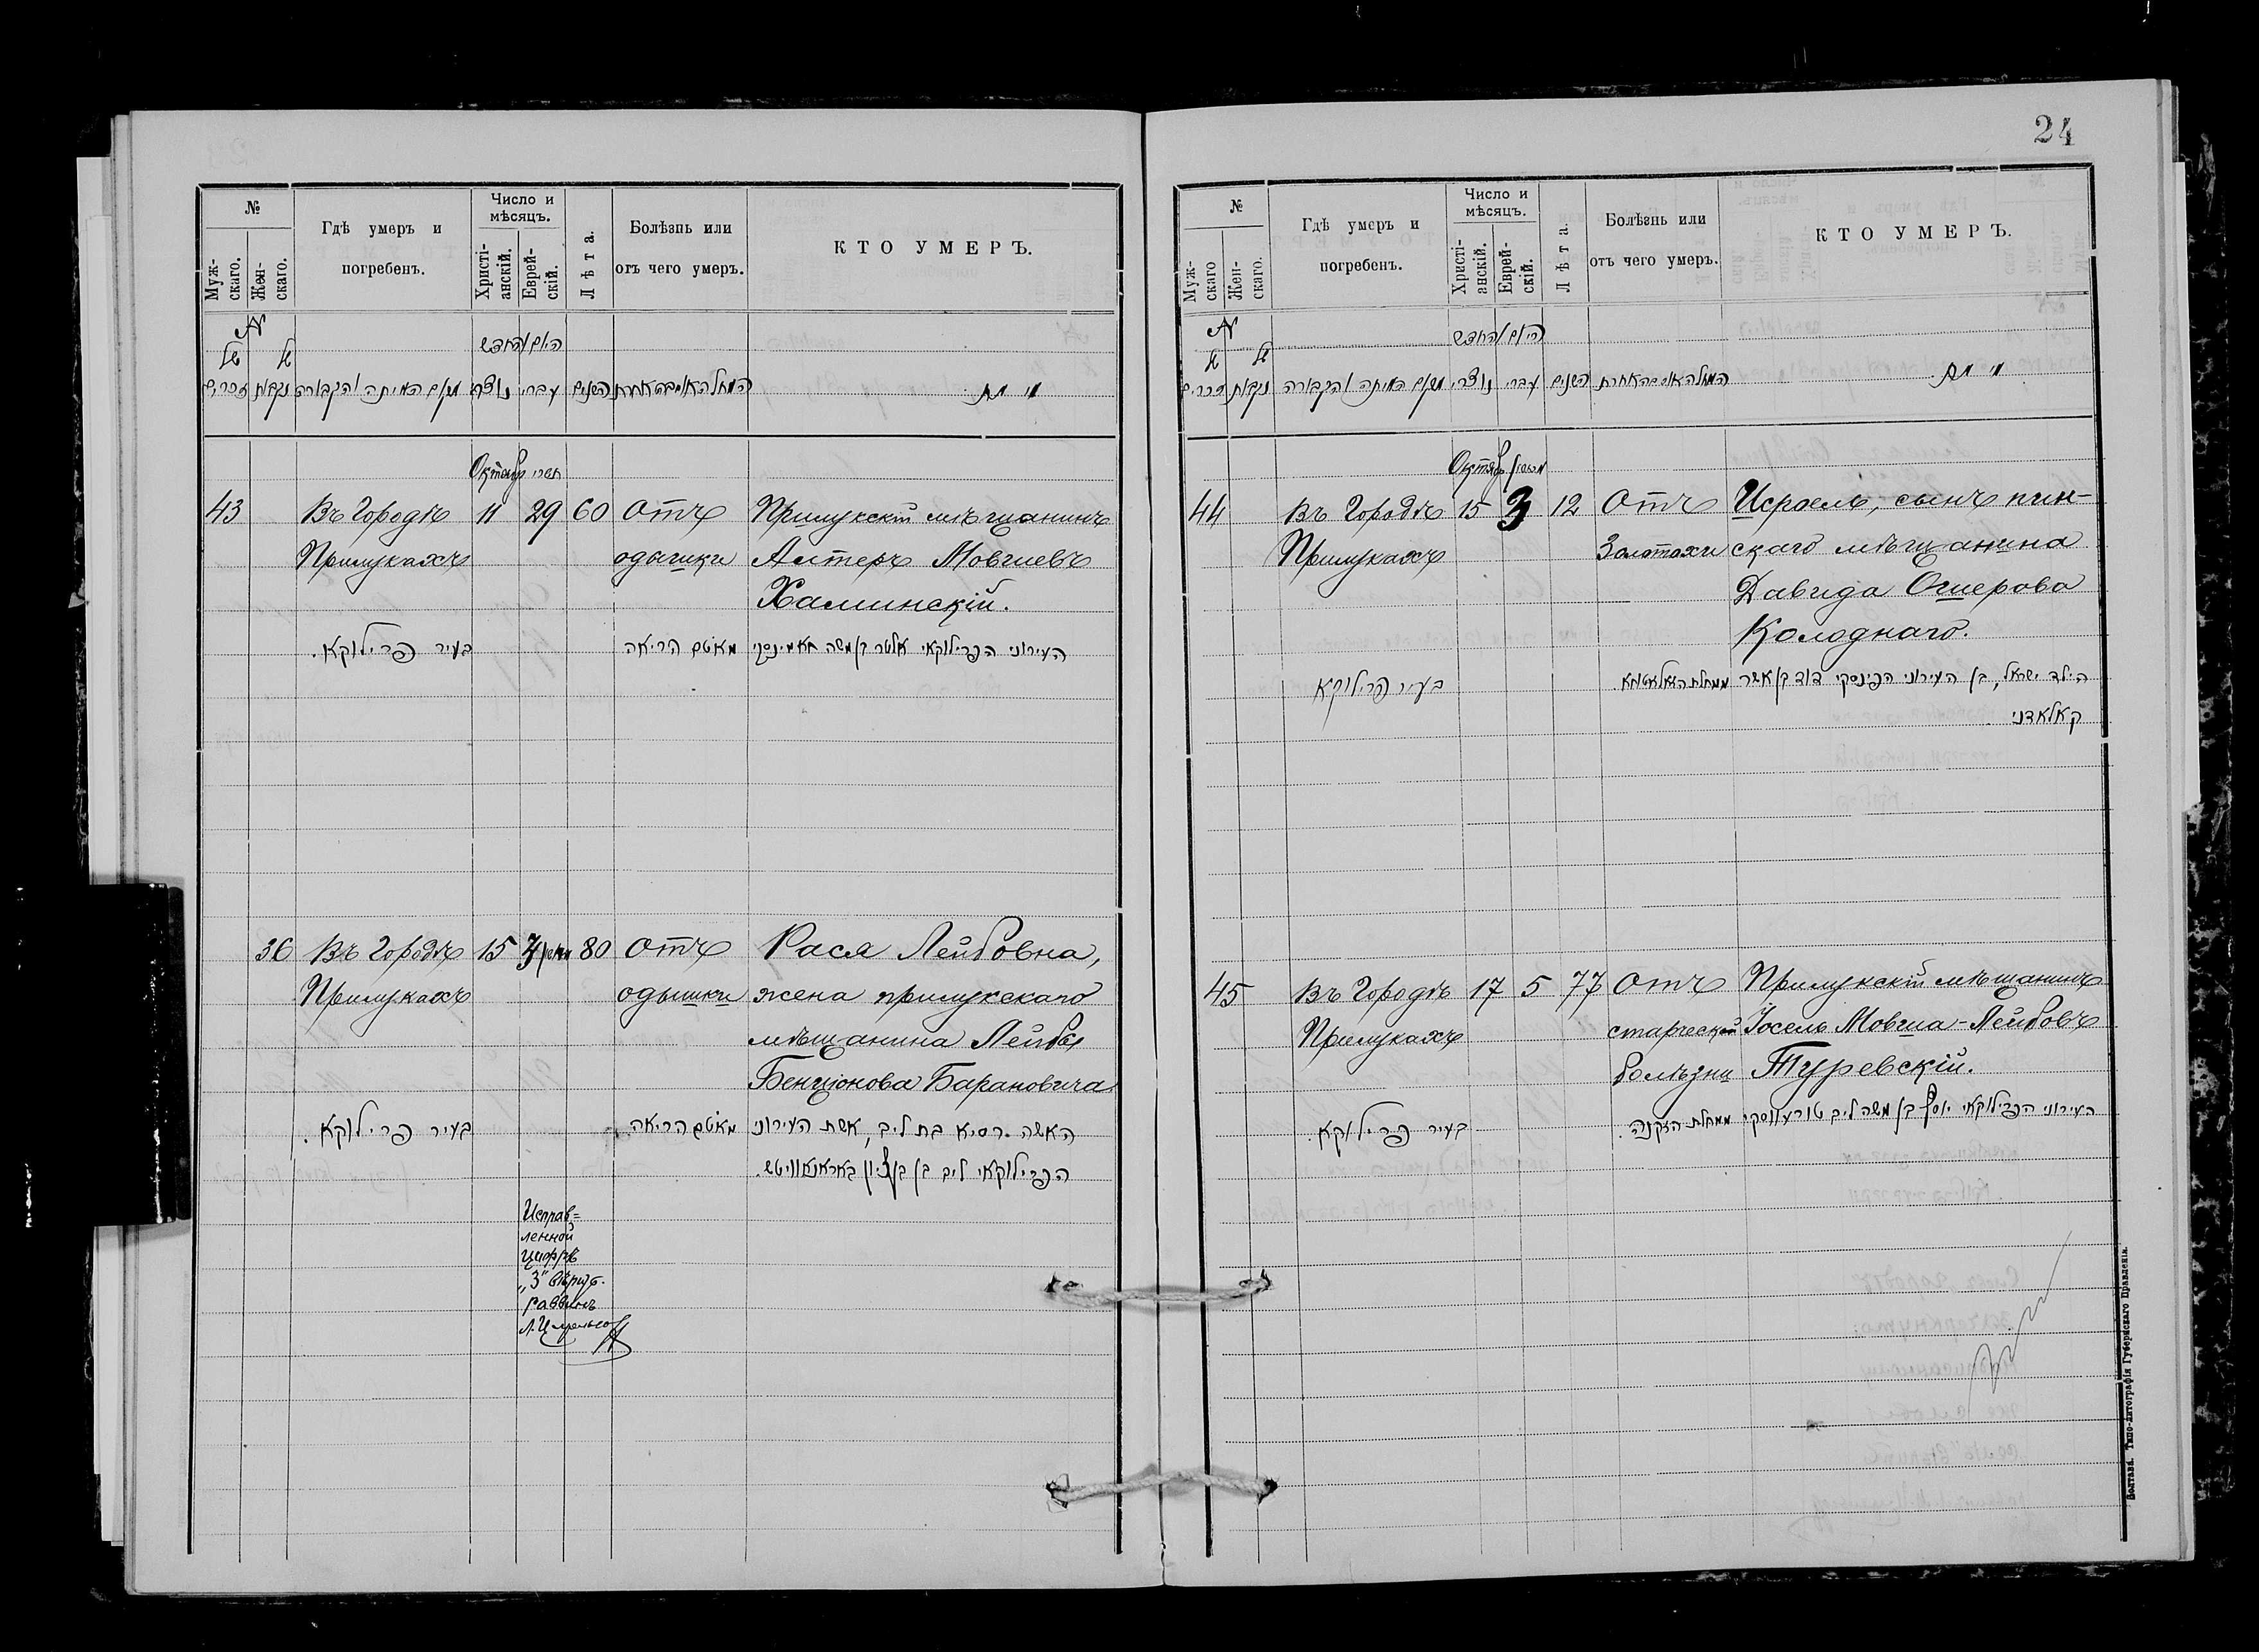 24
№
Муж-
скаго.
Жен-
скаго.
Гдѣ умеръ и
погребенъ.
Число и
мѣсяцъ.
Христі-
анскій.
Еврей-
скій.
Лѣта.
Болѣзнь или
отъ чего умеръ.
КТО УМЕРЪ.
№
של של
היום והחדש
זכרים נקבות מקום המיתה והקבורה נוצרי עברי השנים המחלה או סבה אחרת מי מת
Октябр תשרי
43 Въ Городѣ 11 29 60 Отъ Прилукскій мѣщанинъ
Прилукахъ одышки Алтеръ Мовшевъ
Хаминскій.
בעיר פרילוקא. מאסטם הריאה העירוני הפרילוקאי אלטר בן משה חאמינסקי
36 Въ Городѣ 15 3 חשון 80 Отъ Рася Лейбовна,
Прилукахъ одышки жена прилукскаго
мѣщанина Лейбы
Бенціонова Барановича
בעיר פרילוקא. מאסטם הריאה. האשה רסיא בת ליב, אשת העירוני
הפרילוקאי ליב בן בן ציון באראנאוויטש.
Исправ-
ленной
цифрѣ
„3" вѣрить.
раввинъ
№
Муж-
скаго
Жен-
скаго.
Гдѣ умеръ и
погребенъ.
Число и
мѣсяцъ.
Христі-
анскій.
Еврей-
скій.
Лѣта.
Болѣзнь или
отъ чего умеръ.
КТО УМЕРЪ.
№
של של
היום והחדש
זכרים נקבות מקום המיתה והקבורה נוצרי עברי השנים המחלה או סבה אחרת מי מת
Октябр חשון
44 Въ Городѣ 15 3 12 Отъ Исраель, сынъ пин-
Прилукахъ Золотахи скаго мѣщанина
Давида Ошерова
Колоднаго.
בעיר פרילוקא ממחלת הזאלאטוחא הילד ישראל, בן העירוני הפינסקי דוד בן אשר
קאלאדני
45 Въ Городѣ 17 5 77 Отъ Прилукскій мѣщанинъ
Прилукахъ старческой Іосель Мовша-Лейбовъ
болѣзни Туревскій.
בעיר פרילוקא. ממחלת הזקנה. העירוני הפרילוקאי יוסף בן משה ליב טורעווסקי
Полтава. Типо-Литографія Губернскаго Правленія.